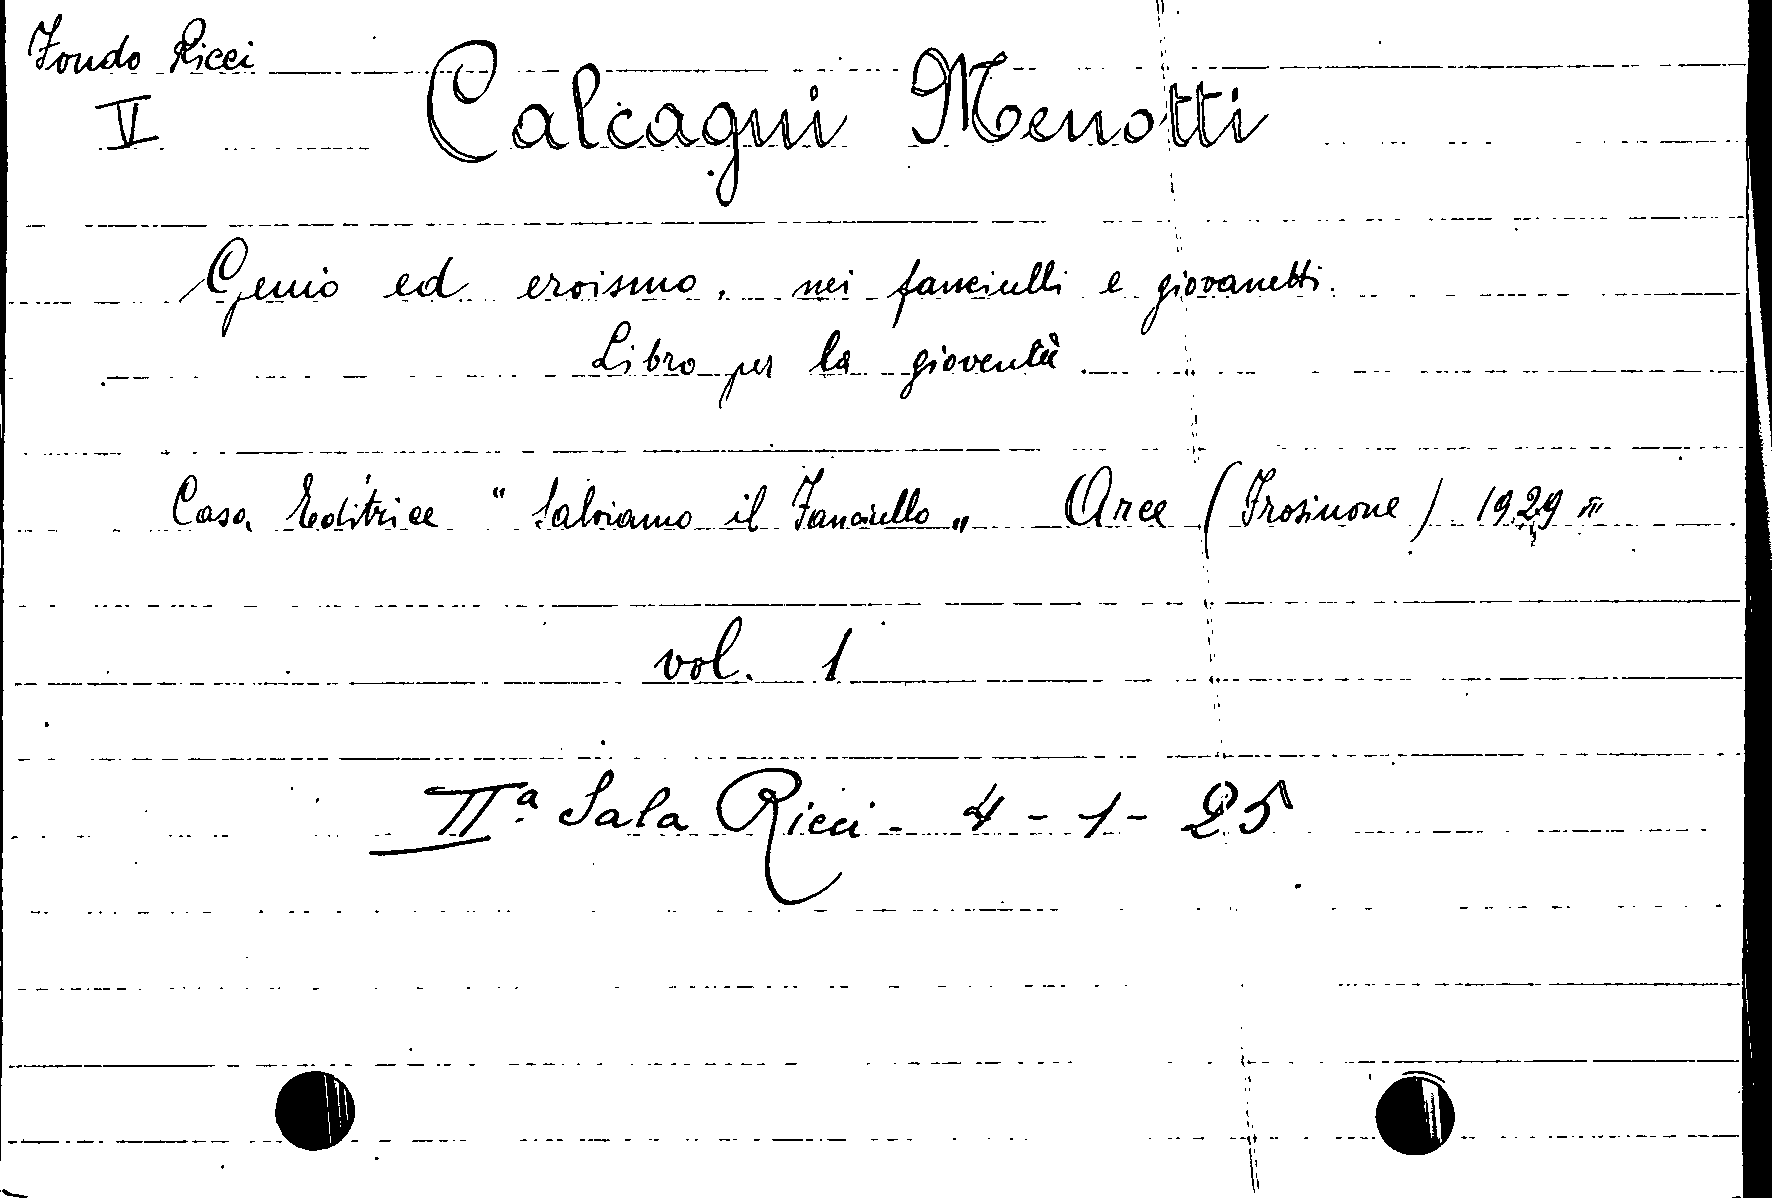 Fondo Ricci
V
Calcagni Menotti
Genio ed eroismo, nei fanciulli e giovanetti.
Libro per la gioventù
Casa Editrice "Salviamo il Fanciullo„ Arce (Frosinone) 1929
vol. 1
IIª Sala Ricci - 4 - 1 - 25